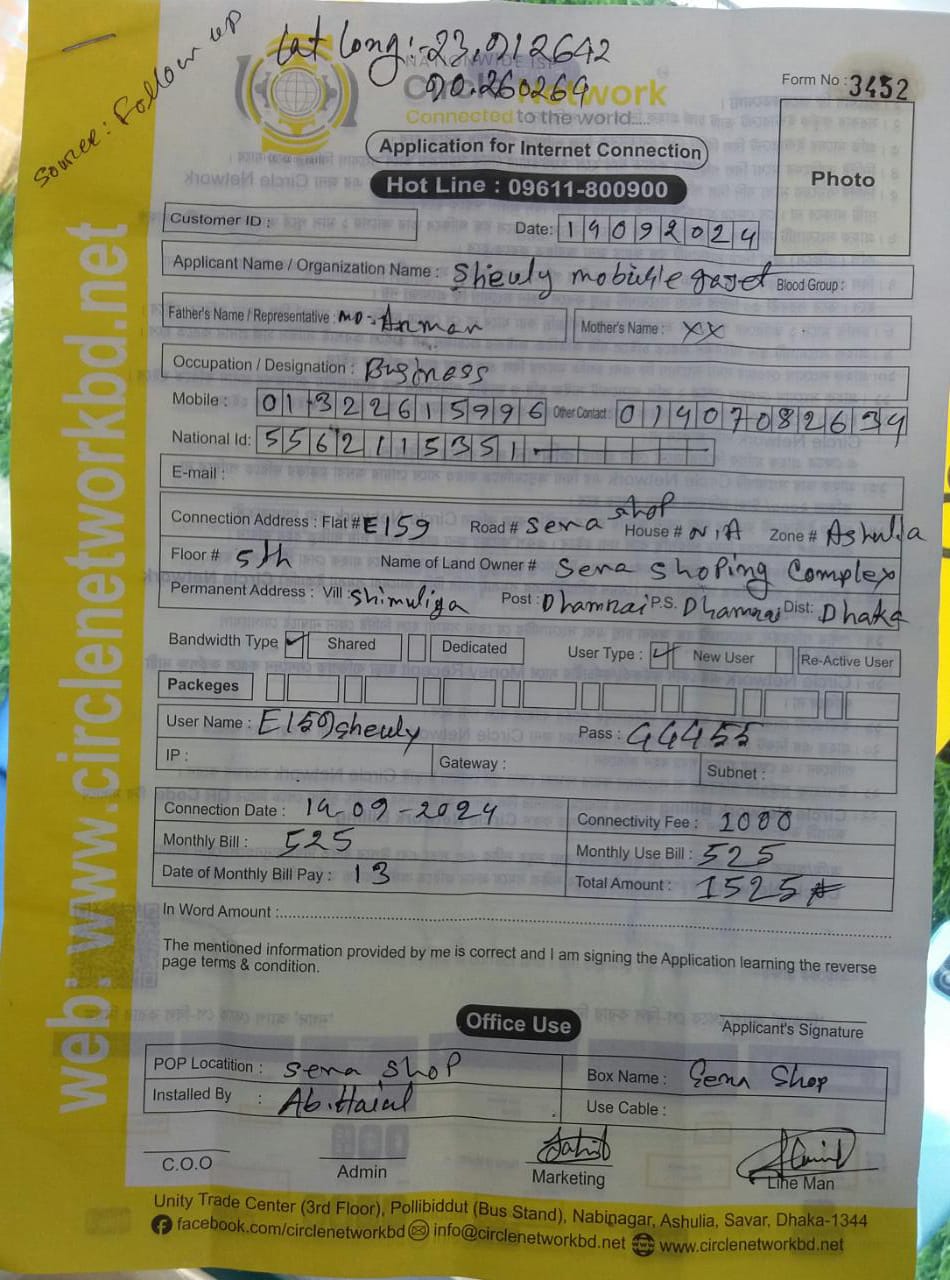 Source: Follow up
Lat Long:-23.912642
90.260269
NATIONWIDE ISP
Circle Network
Connected to the world....
Form No : 3452
Application for Internet Connection
Hot Line : 09611-800900
Photo
Customer ID :
Date: 19092024
Applicant Name / Organization Name : Sheuly mobile Blood Group :
Father's Name / Representative : MD. Arman Mother's Name : XX
Occupation / Designation : Business
Mobile : 01322615996 Other Contact : 01907082634
National Id: 5562115351
E-mail :
Connection Address : Flat # E159 Road # Sena Shop House # N.A Zone # Ashulia
Floor # 5th Name of Land Owner # Sena Shoping Complex
Permanent Address : Vill : Shimuliya Post : Dhamrai P.S. Dhamrai Dist: Dhaka
Bandwidth Type ✓ Shared Dedicated User Type : ✓ New User Re-Active User
Packeges
User Name : E159sheuly Pass : 44455
IP : Gateway : Subnet :
Connection Date : 19-09-2024 Connectivity Fee : 1000
Monthly Bill : 525 Monthly Use Bill : 525
Date of Monthly Bill Pay : 13 Total Amount : 1525
In Word Amount :
The mentioned information provided by me is correct and I am signing the Application learning the reverse
page terms & condition.
Office Use
Applicant's Signature
POP Locatition : Sena Shop Box Name : Sena Shop
Installed By : Use Cable :
C.O.O Admin Marketing Line Man
Unity Trade Center (3rd Floor), Pollibiddut (Bus Stand), Nabinagar, Ashulia, Savar, Dhaka-1344
facebook.com/circlenetworkbd info@circlenetworkbd.net www.circlenetworkbd.net
web: www.circlenetworkbd.net